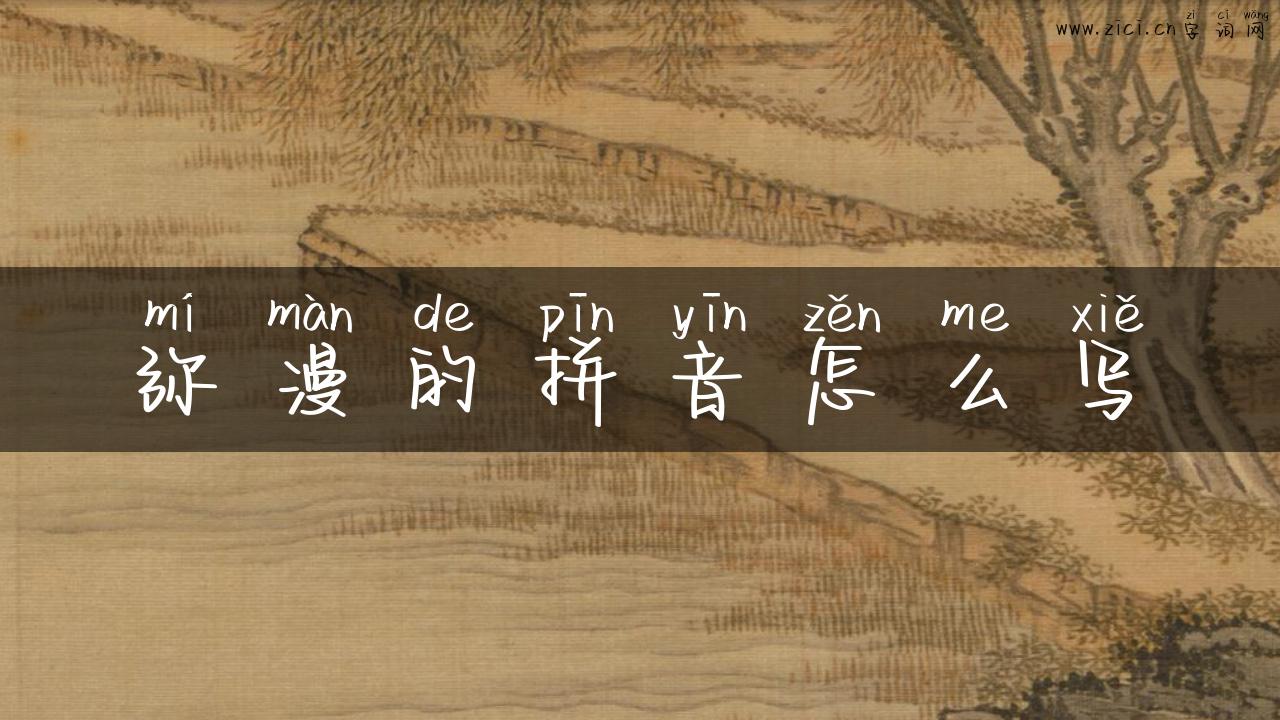 zì cí wǎng
www.zici.cn字词网
mí màn de pīn yīn zěn me xiě
弥漫的拼音怎么写